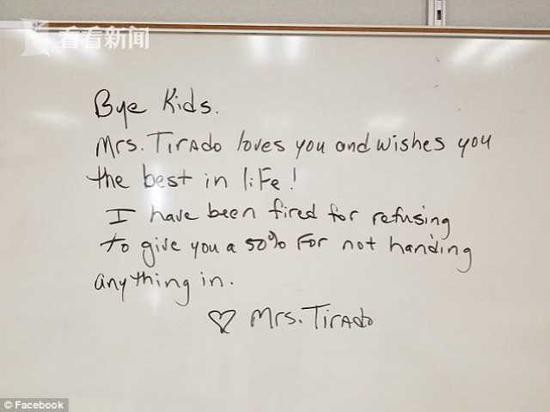 看看新闻
Bye Kids.
Mrs. Tirado loves you and wishes you
the best in life!
I have been fired for refusing
to give you a 50% for not handing
anything in.
♡ Mrs. Tirado
© Facebook